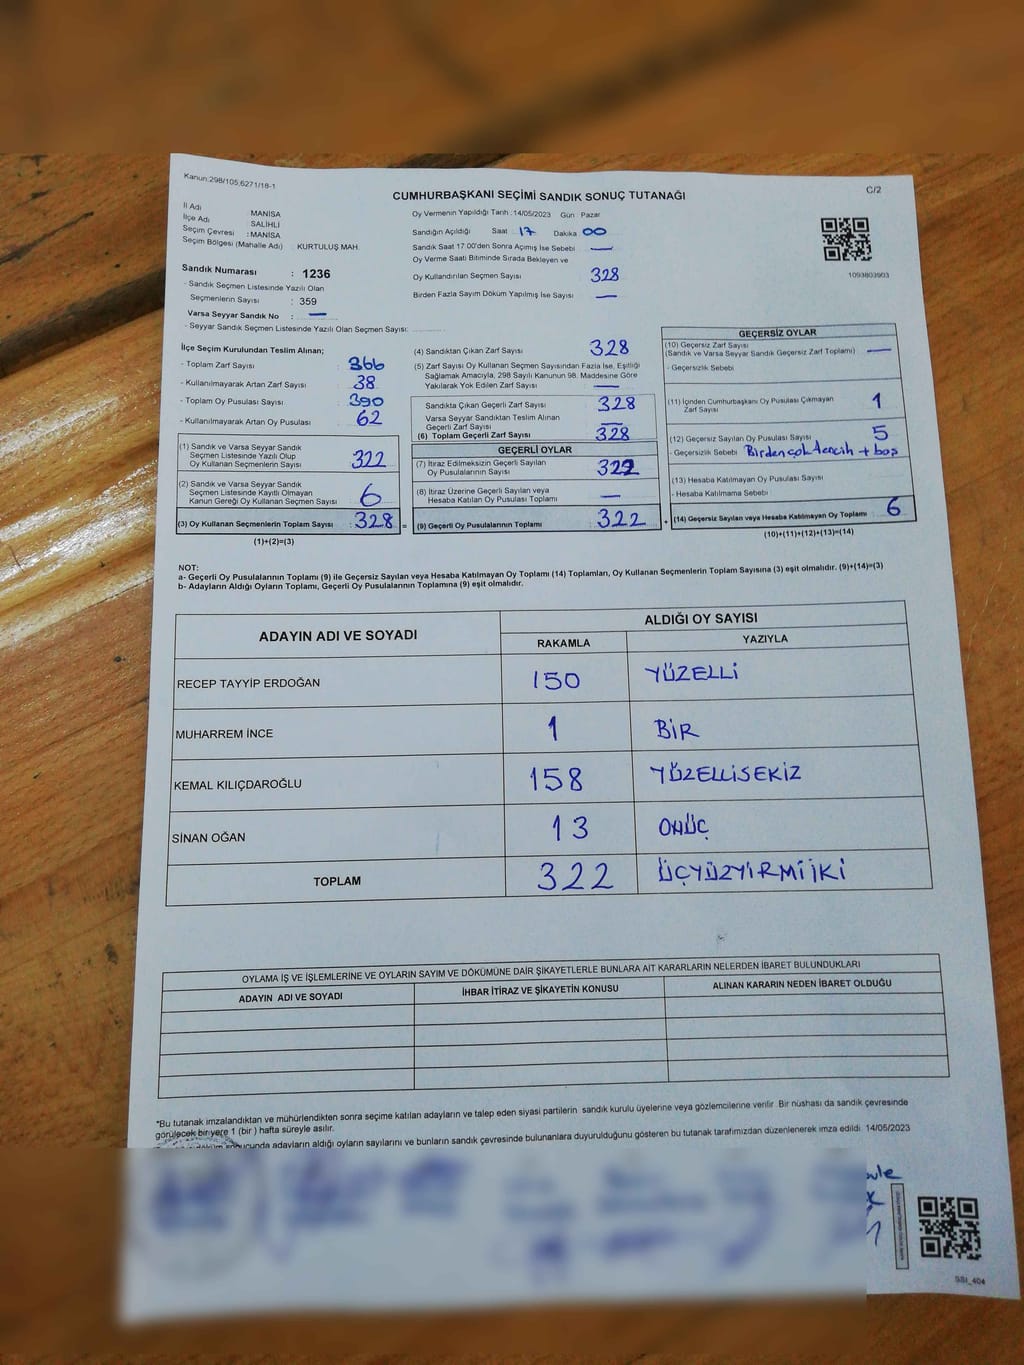 Kanun:298/105;6271/18-1
C/2
CUMHURBAŞKANI SEÇİMİ SANDIK SONUÇ TUTANAĞI
İl Adı MANİSA
İlçe Adı SALİHLİ
Seçim Çevresi :MANİSA
Seçim Bölgesi (Mahalle Adı) : KURTULUŞ MAH.
Sandık Numarası : 1236
- Sandık Seçmen Listesinde Yazılı Olan
Seçmenlerin Sayısı : 359
Varsa Seyyar Sandık No : —
- Seyyar Sandık Seçmen Listesinde Yazılı Olan Seçmen Sayısı: ............
Oy Vermenin Yapıldığı Tarih :14/05/2023 Gün : Pazar
Sandığın Açıldığı Saat 17 Dakika 00
Sandık Saat 17:00'den Sonra Açımış İse Sebebi —
Oy Verme Saati Bitiminde Sırada Bekleyen ve
Oy Kullandırılan Seçmen Sayısı 328
Birden Fazla Sayım Döküm Yapılmış İse Sayısı —
1093803903
İlçe Seçim Kurulundan Teslim Alınan;
- Toplam Zarf Sayısı : 366
- Kullanılmayarak Artan Zarf Sayısı : 38
- Toplam Oy Pusulası Sayısı : 390
- Kullanılmayarak Artan Oy Pusulası : 62
(1) Sandık ve Varsa Seyyar Sandık
Seçmen Listesinde Yazılı Olup
Oy Kullanan Seçmenlerin Sayısı : 322
(2) Sandık ve Varsa Seyyar Sandık
Seçmen Listesinde Kayıtlı Olmayan
Kanun Gereği Oy Kullanan Seçmen Sayısı : 6
(3) Oy Kullanan Seçmenlerin Toplam Sayısı : 328 =
(1)+(2)=(3)
(4) Sandıktan Çıkan Zarf Sayısı : 328
(5) Zarf Sayısı Oy Kullanan Seçmen Sayısından Fazla İse, Eşitliği
Sağlamak Amacıyla, 298 Sayılı Kanunun 98. Maddesine Göre
Yakılarak Yok Edilen Zarf Sayısı : —
Sandıkta Çıkan Geçerli Zarf Sayısı : 328
Varsa Seyyar Sandıktan Teslim Alınan
Geçerli Zarf Sayısı : —
(6) Toplam Geçerli Zarf Sayısı : 328
GEÇERLİ OYLAR
(7) İtiraz Edilmeksizin Geçerli Sayılan
Oy Pusulalarının Sayısı : 322
(8) İtiraz Üzerine Geçerli Sayılan veya
Hesaba Katılan Oy Pusulası Toplamı : —
(9) Geçerli Oy Pusulalarının Toplamı : 322 +
GEÇERSİZ OYLAR
(10) Geçersiz Zarf Sayısı
(Sandık ve Varsa Seyyar Sandık Geçersiz Zarf Toplamı) : —
- Geçersizlik Sebebi
(11) İçinden Cumhurbaşkanı Oy Pusulası Çıkmayan
Zarf Sayısı : 1
(12) Geçersiz Sayılan Oy Pusulası Sayısı : 5
- Geçersizlik Sebebi Birden çok tercih + boş
(13) Hesaba Katılmayan Oy Pusulası Sayısı
- Hesaba Katılmama Sebebi
(14) Geçersiz Sayılan veya Hesaba Katılmayan Oy Toplamı : 6
(10)+(11)+(12)+(13)=(14)
NOT:
a- Geçerli Oy Pusulalarının Toplamı (9) ile Geçersiz Sayılan veya Hesaba Katılmayan Oy Toplamı (14) Toplamları, Oy Kullanan Seçmenlerin Toplam Sayısına (3) eşit olmalıdır. (9)+(14)=(3)
b- Adayların Aldığı Oyların Toplamı, Geçerli Oy Pusulalarının Toplamına (9) eşit olmalıdır.
ADAYIN ADI VE SOYADI ALDIĞI OY SAYISI
RAKAMLA YAZIYLA
RECEP TAYYİP ERDOĞAN 150 YÜZELLİ
MUHARREM İNCE 1 BİR
KEMAL KILIÇDAROĞLU 158 YÜZELLİSEKİZ
SİNAN OĞAN 13 ONÜÇ
TOPLAM 322 ÜÇYÜZYİRMİİKİ
OYLAMA İŞ VE İŞLEMLERİNE VE OYLARIN SAYIM VE DÖKÜMÜNE DAİR ŞİKAYETLERLE BUNLARA AİT KARARLARIN NELERDEN İBARET BULUNDUKLARI
ADAYIN ADI VE SOYADI İHBAR İTİRAZ VE ŞİKAYETİN KONUSU ALINAN KARARIN NEDEN İBARET OLDUĞU
*Bu tutanak imzalandıktan ve mühürlendikten sonra seçime katılan adayların ve talep eden siyasi partilerin sandık kurulu üyelerine veya gözlemcilerine verilir. Bir nüshası da sandık çevresinde
görülecek bir yere 1 (bir) hafta süreyle asılır.
adayların aldığı oyların sayılarını ve bunların sandık çevresinde bulunanlara duyurulduğunu gösteren bu tutanak tarafımızdan düzenlenerek imza edildi. 14/05/2023
SSI_404